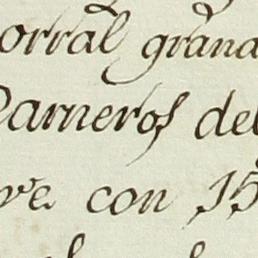 orral grana
Carneros del
ve con 15